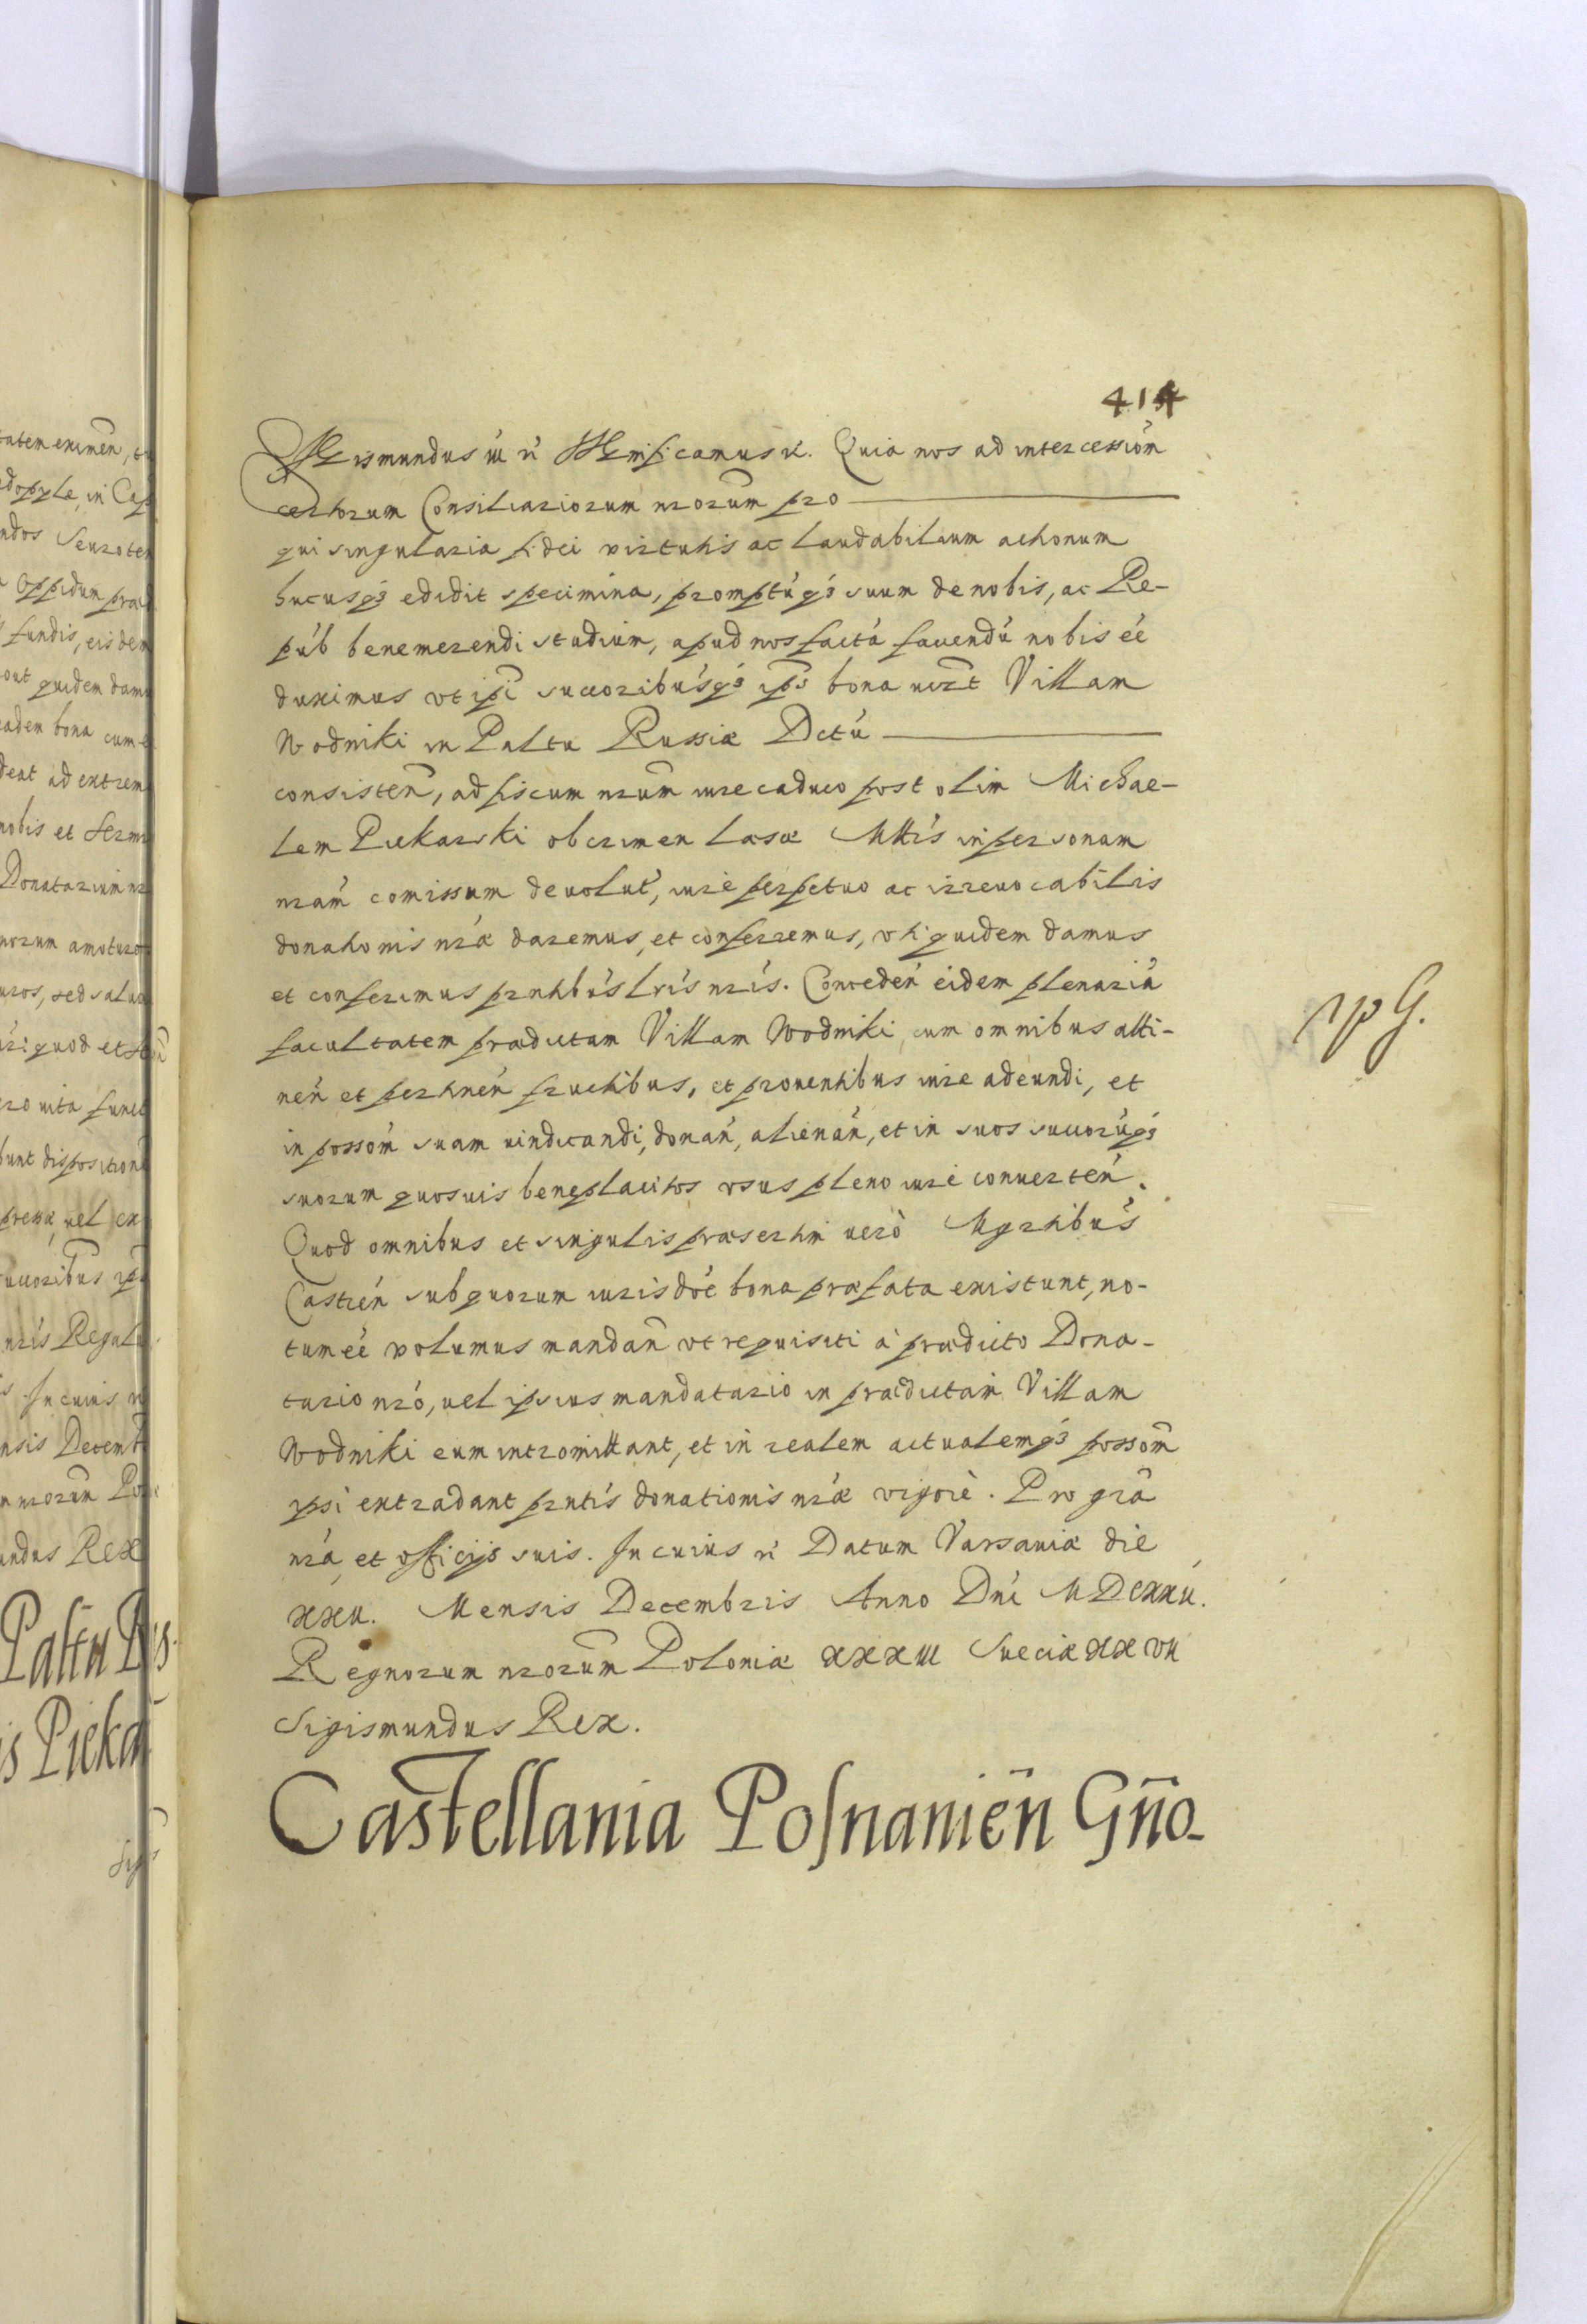 414
Sigismundus iii &c Significamus &c. Quia nos ad intercessióm
certorum Consiliariorum nrorum pro
qui singularia fidei virtutis ac laudabilium actionum
hucusq3 edidit specimina, promptúq3 suum de nobis, ac Re-
púb benemerendi studium, apud nos factá fauendú nobis éé
duximus vt ipi succoribúsq3 ips bona nirzt Villam
Wodniki in Paltu Russiæ Dctú
consisten, ad fiscum nrum iure caduco post olim Michae-
lem Piekarski ob crimen læsæ Mttis in personam
nram comissum deuolut, iure perpetuo ac irreuocabilis
donationis nræ daremus, et conferremus, vti quidem damus
et conferimus pnntibus lris nris. Conceden eidem plenariá
facultatem prædictam Villam Wodniki cum omnibus atti-
nen et pertinen fructibus, et prouentibus iure adeundi, et
in possom suam uindicandi, donan, alienan, et in suos succorúq3
suorum quosuis beneplacitos vsus pleno iure conuerten.
Quod omnibus et singulis præsertim uerò Mgrtibus
Castren sub quorum iurisdoe bona præfata existunt, no-
tum éé volumus mandan vt requisiti à prædicto Dona-
tario nro, uel ipsius mandatario in prædictam Villam
Wodniki eum intromittant, et in realem actualemq3 possom
ipsi extradant prntis donationis nræ vigore. Pro gra
nra, et officijs suis. In cuius rei Datum Varsauiæ die
xxii. Mensis Decembris Anno Dni MDcxxii.
Regnorum nrorum Poloniæ xxxiii Sueciæ xxviii
Sigismundus Rex.
Castellania Posnanien Gno-
rpG.